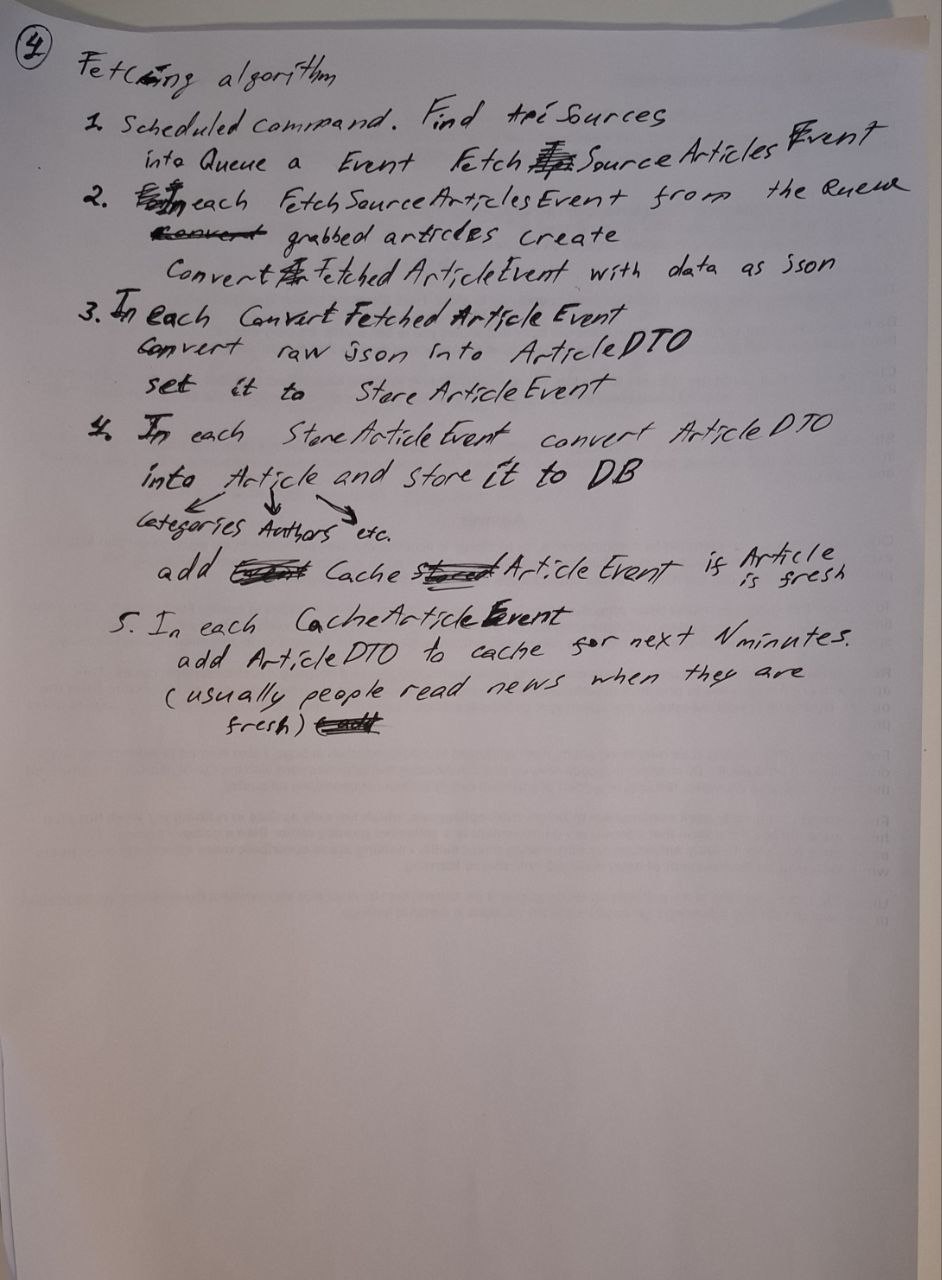 4
Fetching algorithm
1. Scheduled command. Find Api Sources
into Queue a Event Fetch Source Articles Event
2. In each FetchSourceArticlesEvent from the Queue
convert grabbed articles create
Convert Fetched ArticleEvent with data as json
3. In each Convert Fetched Article Event
Convert raw json into ArticleDTO
set it to Store ArticleEvent
4. In each StoreArticleEvent convert ArticleDTO
into Article and store it to DB
Categories Authors etc.
add Event Cache stored Article Event if Article
is fresh
5. In each CacheArticleEvent
add ArticleDTO to cache for next N minutes.
(usually people read news when they are
fresh)